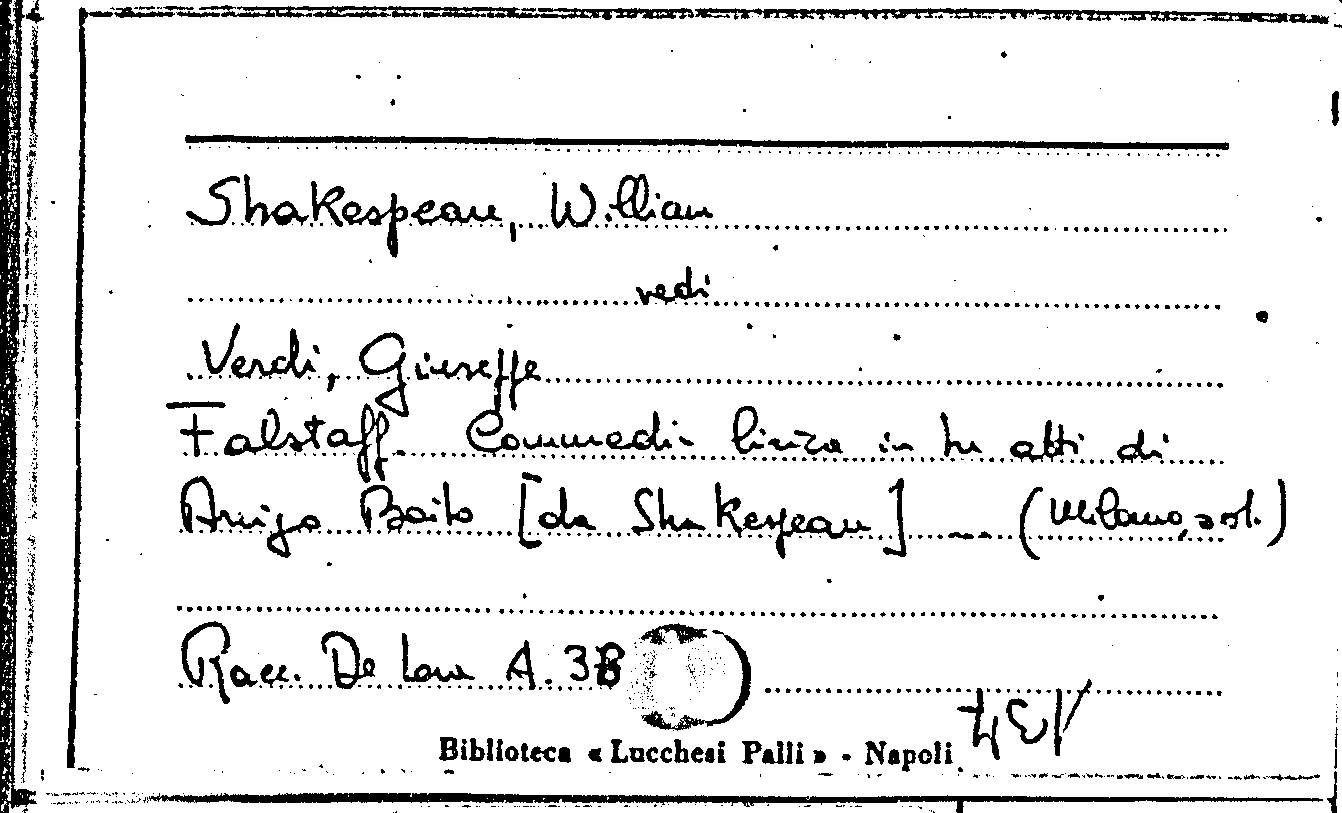 Shakespeare, William
vedi
Verdi, Giuseppe
Falstaff. Commedia lirica in tre atti di
Arrigo Boito [da Shakespeare] — (Milano,
Racc. De A. 3B
Biblioteca « Lucchesi Palli » - Napoli